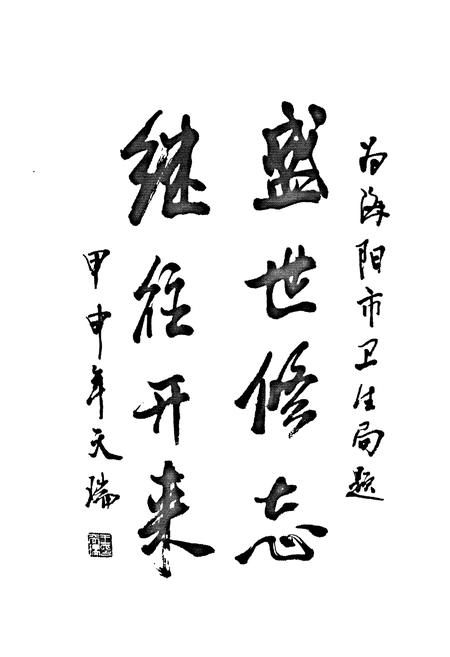 为海阳市卫生局题
盛世修志
继往开来
甲申年天瑞